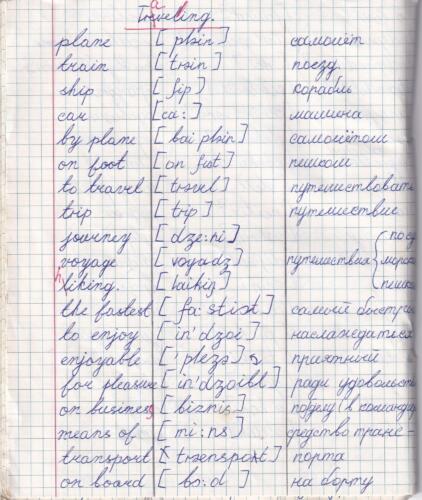 Traveling.
a
plane [plein] самолёт
train [trein] поезд
ship [ʃip] корабль
car [ca:] машина
by plane [bai plein] самолётом
on foot [on fut] пешком
to travel [trævl] путешествовать
trip [trip] путешествие
journey [dze:ni] поезд
voyage [voyadz] путешествия { морск
hiking. [laikiŋ] пешко
the fastest [fa:stist] самый быстрый
to enjoy [in'dzoi] наслаждаться
enjoyable ['plezə] приятный
for pleasure [in'dzoibl] ради удовольст
on business [biznis] по делу (в командир
means of [mi:ns] средство транс-
transport [trænsport] порта
on board [bo:d] на борту